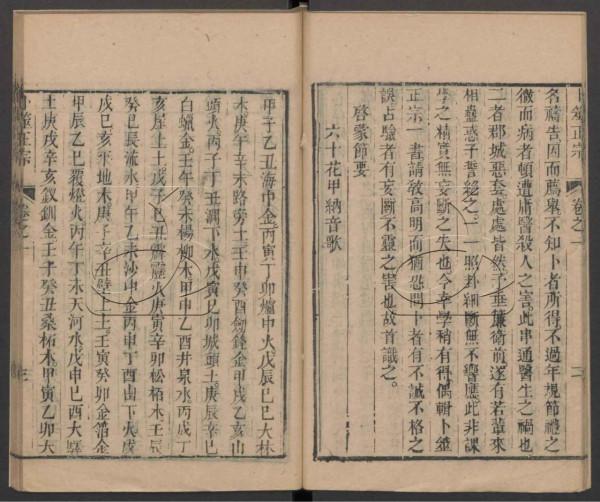 卜筮正宗 卷之一 二
名禱告因而薦舉不知卜者所得不過年規節禮之
微而病者頓遭庸醫殺人之害此串通醫生之禍也
二者郡城惡套處處皆然予垂簾衛前遂有若輩來
相蠱惑予誓絕之一一照卦細斷無不響應此非課
學之精實無妄斷之失也今幸學稍有得偶輯卜筮
正宗一書請敎高明而猶恐問卜者有不誠不格之
誤占驗者有妄斷不靈之害也故首識之
啓蒙節要
六十花甲納音歌
甲子乙丑海中金丙寅丁卯爐中火戊辰己巳大林
木庚午辛未路旁土壬申癸酉劒鋒金甲戌乙亥山
頭火丙子丁丑澗下水戊寅己卯城頭土庚辰辛巳
白蠟金壬午癸未楊柳木甲申乙酉井泉水丙戌丁
亥屋上土戊子己丑霹靂火庚寅辛卯松栢木壬辰
癸巳長流水甲午乙未沙中金丙申丁酉山下火戊
戌己亥平地木庚子辛丑壁上土壬寅癸卯金箔金
甲辰乙巳覆燈火丙午丁未天河水戊申己酉大驛
土庚戌辛亥釵釧金壬子癸丑桑柘木甲寅乙卯大
卜筮正宗 卷之一 三